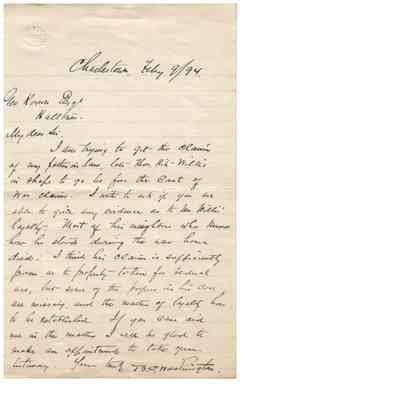 Charlestown, Feby 9/94
Geo Koonce Esq
Halltown
My dear Sir.
I am trying to get the claim
of my father in law, Col. Thos. Hite Willis
in shape to go before the Court of
War claims. I write to ask if you are
able to give any evidence as to Mr Willis'
loyalty - Most of his neighbors who knew
how he stood during the war have
died. I think his claim is sufficiently
proven as to property taken for Federal
use, but some of the papers in his case
are missing and the matter of loyalty has
to be established. If you can aid
me in the matter I will be glad to
make an appointment to take your
testimony. Yours truly Washington.